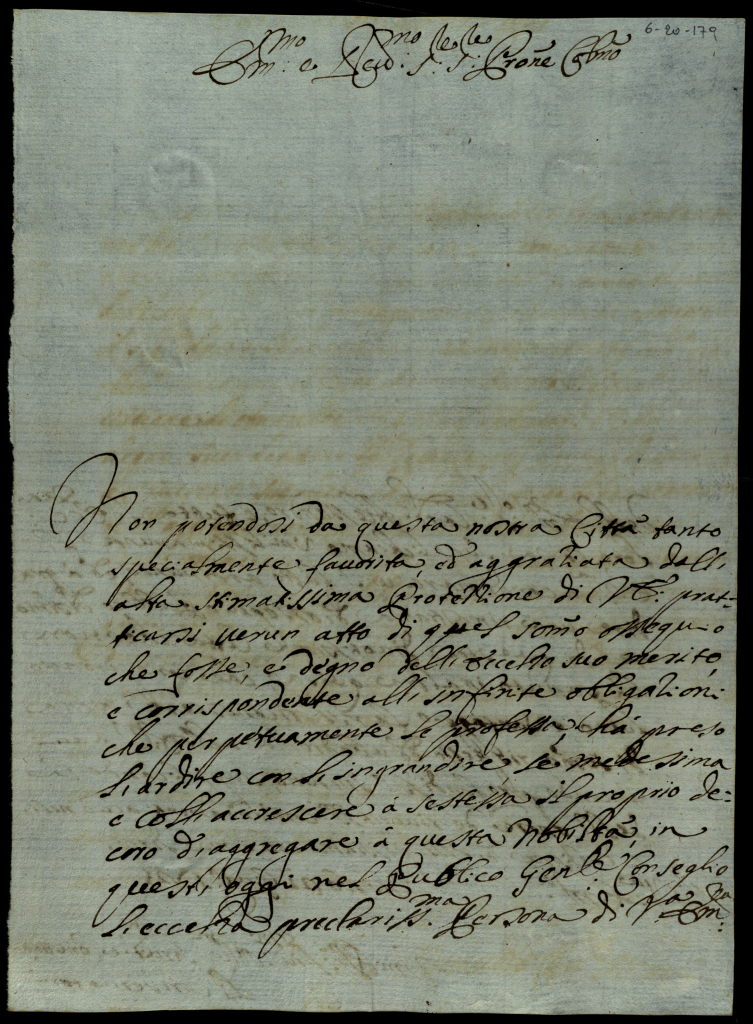 6-20-179
Em:mo e Reu:mo Sr. Sr. Prone Colmo
Non potendosi da questa nostra Città tanto
specialmente fauorita, ed aggratiata dall'
alta stimatissima Protettione di VE: prat-
ticarsi uerun atto di quel somo ossequio
che fosse, e degno dell'eccelso suo merito,
e corrispondente all'infinite obligationi
che perpetuamente le professa, hà preso
l'ardire con l'ingrandire se medessima
e coll'accrescere à sestessa il proprio de=
coro d'aggregare à questa Nobiltà, in
quest'oggi nel Publico Gen:le Conseglio
l'eccelsa preclariss:ma Persona di V:a Em:za